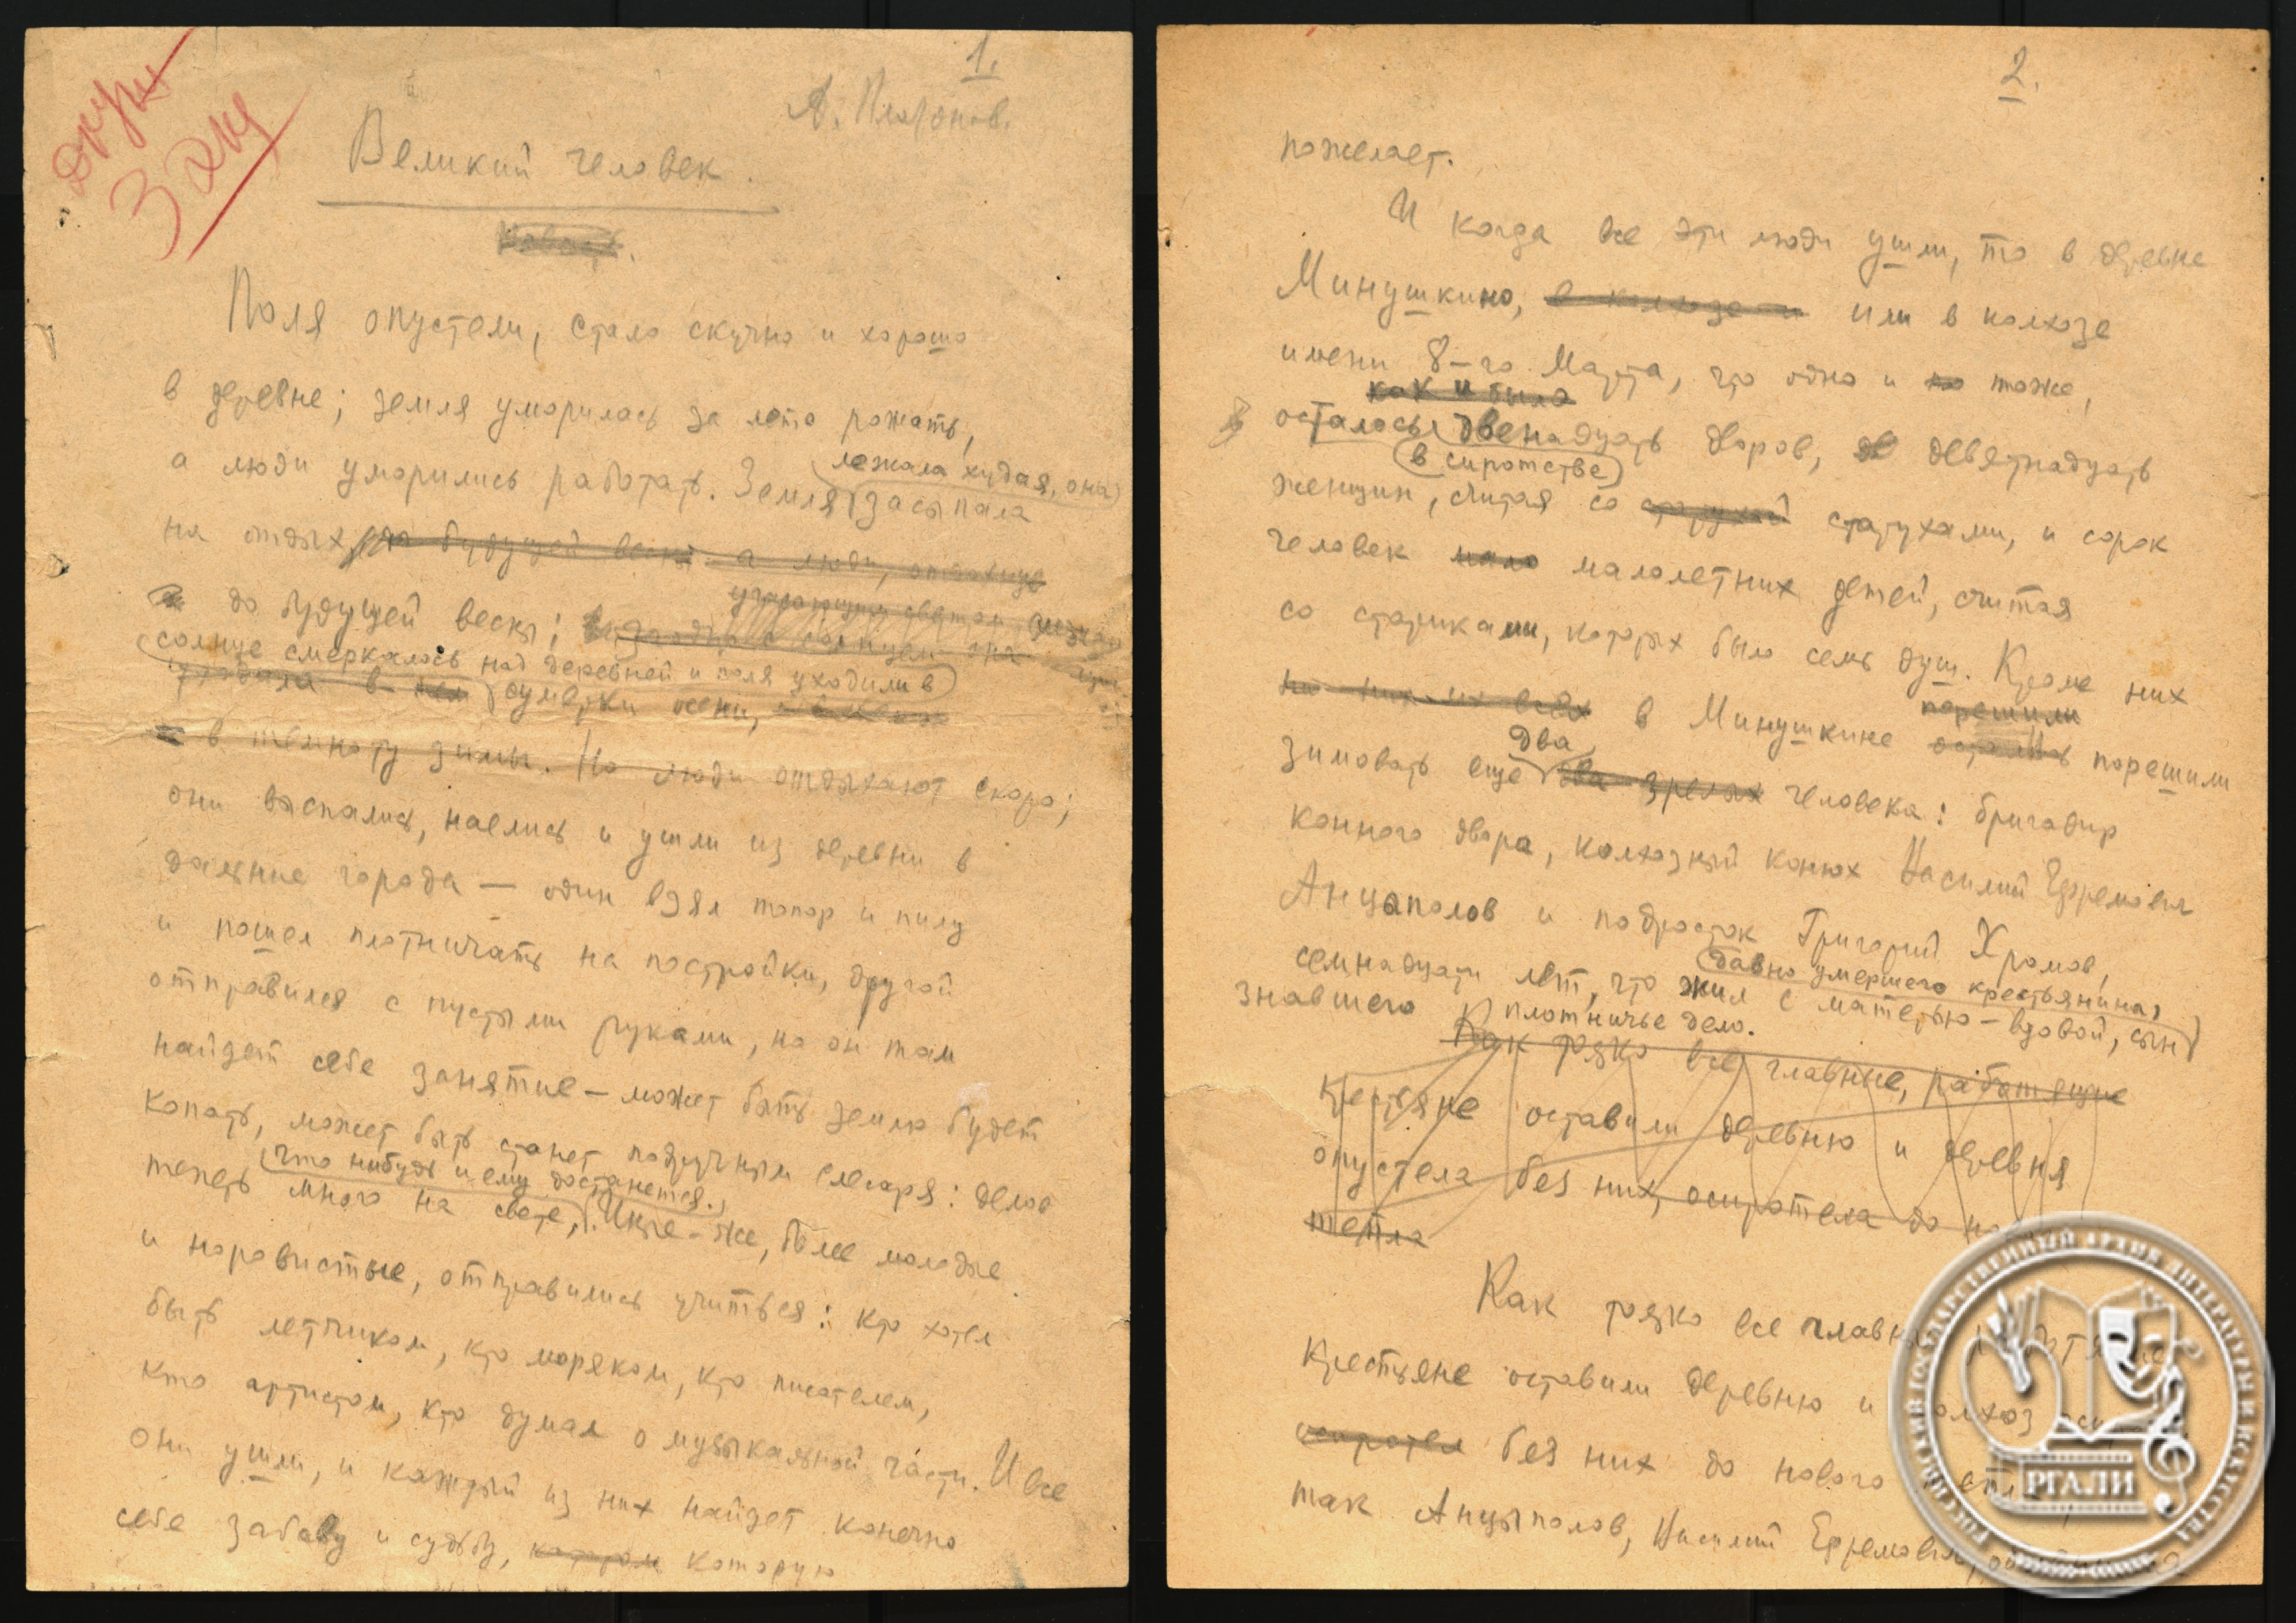 1.
А. Платонов.
Великий человек.
Поля опустели, стало скучно и хорошо
в деревне; земля уморилась за лето рожать,
а люди уморились работать. Земля засыпала
лежала худая, она
на отдых до будущей весны а люди, отдохнув
до будущей весны;
угасающим светом
солнце смеркалось над деревней и поля уходили в
уходила в сумерки осени,
в темноту зимы. Но люди отдыхают скоро;
они выспались, наелись и ушли из деревни в
дальние города — один взял топор и пилу
и пошел плотничать на постройки, другой
отправился с пустыми руками, но он там
найдет себе занятие — может быть землю будет
копать, может быть станет подручным слесаря: делов
что нибудь и ему достанется.
теперь много на свете, Иные-же, более молодые
и норовистые, отправились учиться: кто хотел
быть летчиком, кто моряком, кто писателем,
кто артистом, кто думал о музыкальной части. И все
они ушли, и каждый из них найдет конечно
себе забаву и судьбу, которую
2.
пожелает.
И когда все эти люди ушли, то в деревне
Минушкино, в колхозе и или в колхозе
имени 8-го Марта, что одно и то тоже,
как и было
осталось двенадцать дворов, девятнадцать
в сиротстве
женщин, считая со старухой старухами, и сорок
человек мало малолетних детей, считая
со стариками, которых было семь душ. Кроме них
порешили
в Минушкине остались порешили
два
зимовать еще два зрелых человека: бригадир
конного двора, колхозный конюх Василий Ефремович
Анцыполов и подросток Григорий Хромов,
давно умершего крестьянина,
семнадцати лет, что жил с матерью-вдовой, сын
знавшего плотничье дело.
Как только все главные, работящие
крестьяне оставили деревню и деревня
опустела без них, осиротела до
тепла
Как только все
крестьяне оставили деревню и колхоз
осиротел без них до нового
так Анцыполов, Василий Ефремович,
РОССИЙСКИЙ ГОСУДАРСТВЕННЫЙ АРХИВ ЛИТЕРАТУРЫ И ИСКУССТВА
РГАЛИ